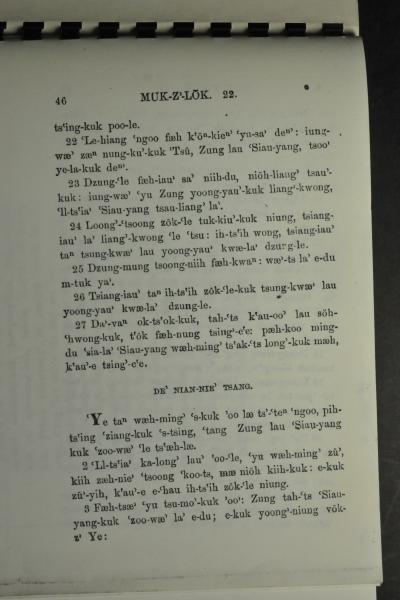 46
MUK-Z'-LÖK. 22.
ts'ing-kuk poo-le.
22 ʻLe-hiang ʻngoo fæh k'öⁿ-kieⁿ' ʻyu-saʼ deⁿ': iung-
wæ' zæⁿ nung-ku'-kuk ʻTsû, Zung lau ʻSiau-yang, tsoo'
ye-la-kuk deⁿ'.
23 Dzung-ʻle fæh-iau' sa' niih-du, niöh-liang' tsau'-
kuk: iung-wæ' ʻyu Zung yoong-yau'-kuk liang'-kwong,
ʻll-ts'ia' ʻSiau-yang tsau-liang' la'.
24 Loong'-ʻtsoong zök-ʻle tuk-kiu'-kuk niung, tsiang-
iau' la' liang'-kwong ʻle ʻtsu: ih-ts'ih wong, tsiang-iau'
taⁿ tsung-kwæ' lau yoong-yau' kwæ-la' dzung-le.
25 Dzung-mung tsoong-niih fæh-kwaⁿ: wæ'-ts la' e-du
m-tuk ya'.
26 Tsiang-iau' taⁿ ih-ts'ih zök-ʻle-kuk tsung-kwæ' lau
yoong-yau' kwæ-la' dzung-le.
27 Da'-vaⁿ ok-ts'ok-kuk, tah-ʻts k'au-oo' lau söh-
ʻhwong-kuk, t'ök fæh-nung tsing'-c'e: pæh-koo ming-
du ʻsia-la' ʻSiau-yang wæh-ming' ts'ak-ʻts long'-kuk mæh,
k'au'-e tsing'-c'e.
DE' NIAN-NIE' TSANG.
ʻYe taⁿ wæh-ming' ʻs-kuk ʻoo læ ts'-ʻteⁿ ʻngoo, pih-
ts'ing ʻziang-kuk ʻs-tsing, ʻtang Zung lau ʻSiau-yang
kuk ʻzoo-wæ' ʻle ts'æh-læ.
2 ʻLl-ts'ia' ka-long' lau' ʻoo-ʻle, ʻyu wæh-ming' zû',
kiih zæh-nie' ʻtsoong ʻkoo-ts, mæ niöh kiih-kuk: e-kuk
zû'-yih, k'au'-e e-ʻhau ih-ts'ih zök-ʻle niung.
3 Fæh-tsæ' ʻyu tsu-mo'-kuk ʻooʻ: Zung tah-ʻts ʻSiau-
yang-kuk ʻzoo-wæ' la' e-du; e-kuk yoong'-niung vök-
z' Ye: